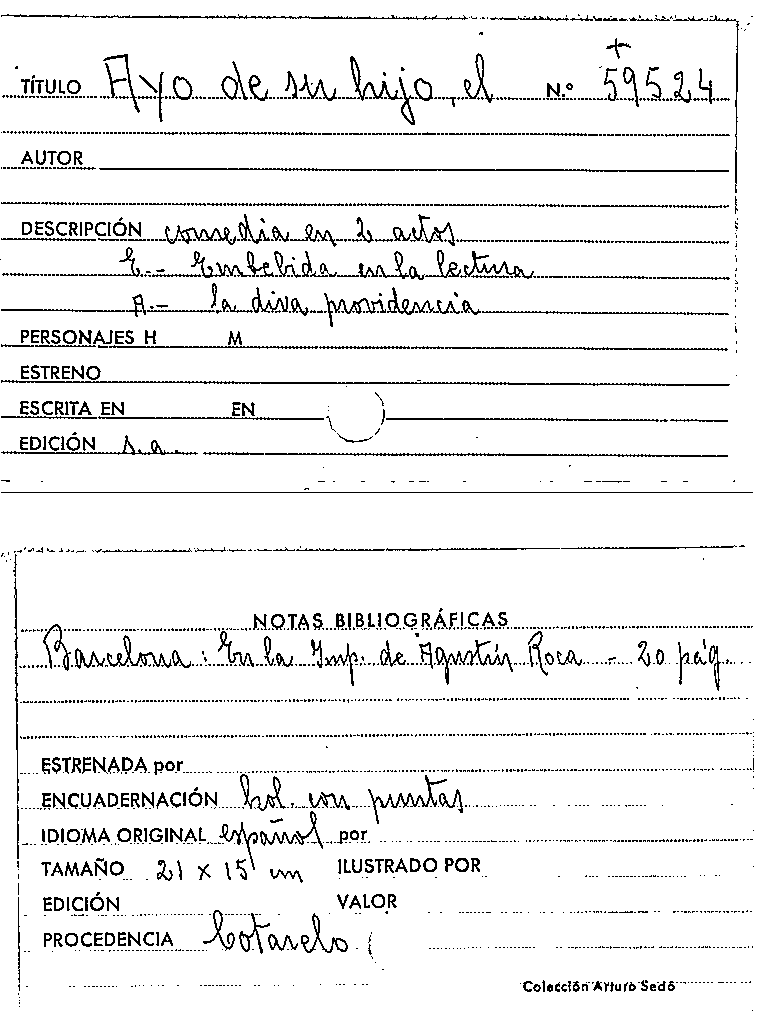 +
TÍTULO Ayo de su hijo, el N.º 59524
AUTOR
DESCRIPCIÓN comedia en 2 actos
E.- Embebida en la lectura
A.- la diva providencia
PERSONAJES H M
ESTRENO
ESCRITA EN EN
EDICIÓN s.a.
NOTAS BIBLIOGRÁFICAS
Barcelona: En la Imp. de Agustín Roca - 20 pág.
ESTRENADA por
ENCUADERNACIÓN hol. con puntas
IDIOMA ORIGINAL español por
TAMAÑO 21 x 15 cm ILUSTRADO POR
EDICIÓN VALOR
PROCEDENCIA Cotarelo
Colección Arturo Sedó